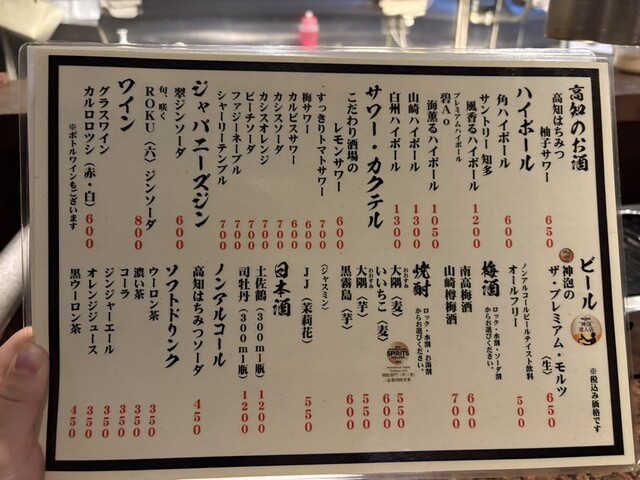 高知のお酒
高知はちみつ
柚子サワー 650
ハイボール
角ハイボール 600
サントリー 知多
風香るハイボール 1200
プレミアムハイボール
碧Ao
海薫るハイボール 1050
山崎ハイボール 1300
白州ハイボール 1300
サワー・カクテル
こだわり酒場の
レモンサワー 600
すっきりトマトサワー 700
梅サワー 600
カルピスサワー 600
カシスソーダ 700
カシスオレンジ 700
ピーチソーダ 700
ファジーネーブル 700
シャーリーテンプル 700
ジャパニーズジン
翠ジンソーダ 600
旬、咲く
ROKU〈六〉ジンソーダ 800
ワイン
グラスワイン
カルロロッシ(赤・白) 600
※ボトルワインもございます
ビール
※税込み価格です
神泡の
ザ・プレミアム・モルツ
(生) 650
ノンアルコールビールテイスト飲料
オールフリー 500
梅酒
ロック・水割・ソーダ割
からお選びください。
南高梅酒 600
山崎樽梅酒 700
焼酎
ロック・水割・お湯割
からお選びください。
大隅(麦) 550
おおすみ
いいちこ(麦) 600
大隅(芋) 550
おおすみ
黒霧島(芋) 600
(ジャスミン)
JJ(茉莉花) 550
日本酒
土佐鶴(300ml瓶) 1200
司牡丹(300ml瓶) 1200
ノンアルコール
高知はちみつソーダ 450
ソフトドリンク
ウーロン茶 350
濃い茶 350
コーラ 350
ジンジャーエール 350
オレンジジュース 350
黒ウーロン茶 450
SPIRITS